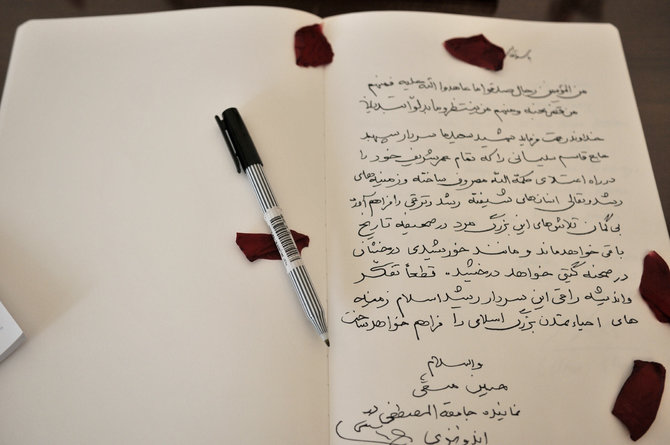 باسمه تعالی
من المؤمنین رجال صدقوا ما عاهدوا الله علیه فمنهم
من قضی نحبه ومنهم من ینتظر وما بدلوا تبدیلا
خداوند رحمت فرماید شهید سعید ما سردار سپهبد
حاج قاسم سلیمانی را که تمام عمر شریف خود را
در راه اعتلای کلمة الله مصروف ساخته و زمینه های
رشد و تعالی انسانهای شیفته رشد و ترقی را فراهم آورد
بی گمان تلاش های این بزرگ مرد در صحیفه تاریخ
باقی خواهد ماند و مانند خورشیدی درخشان
در صحنه گیتی خواهد درخشید. قطعاً تفکّر
واندیشه راقی این سردار رشید اسلام زمینه
های احیاء تمدن بزرگ اسلامی را فراهم خواهد ساخت
والسلام
حسین متقی
نماینده جامعة المصطفی در
اندونزی